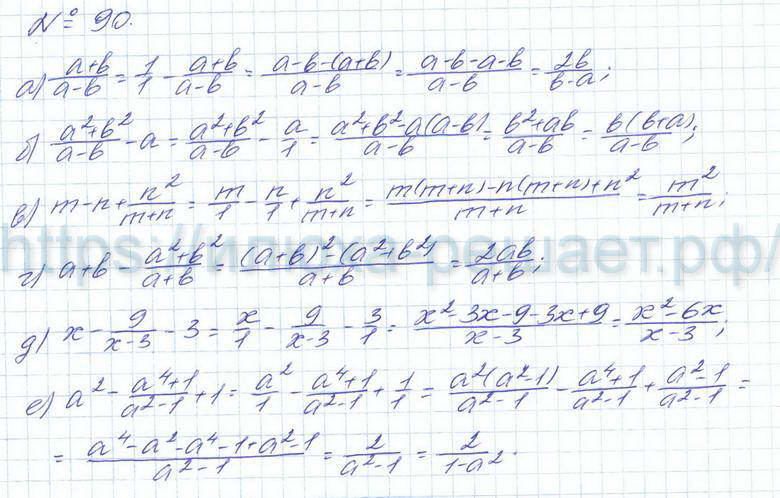 № 90.
а) (a+b)/(a-b) = 1/1 - (a+b)/(a-b) = (a-b-(a+b))/(a-b) = (a-b-a-b)/(a-b) = 2b/(b-a);
б) (a²+b²)/(a-b) - a = (a²+b²)/(a-b) - a/1 = (a²+b²-a(a-b))/(a-b) = (b²+ab)/(a-b) = b(b+a)/(a-b);
в) m-n+n²/(m+n) = m/1 - n/1 + n²/(m+n) = (m(m+n)-n(m+n)+n²)/(m+n) = m²/(m+n);
https://ишака-решает.рф/
г) a+b - (a²+b²)/(a+b) = ((a+b)²-(a²+b²))/(a+b) = 2ab/(a+b);
д) x - 9/(x-3) - 3 = x/1 - 9/(x-3) - 3/1 = (x²-3x-9-3x+9)/(x-3) = (x²-6x)/(x-3);
е) a² - (a⁴+1)/(a²-1) + 1 = a²/1 - (a⁴+1)/(a²-1) + 1/1 = a²(a²-1)/(a²-1) - (a⁴+1)/(a²-1) + (a²-1)/(a²-1) =
= (a⁴-a²-a⁴-1+a²-1)/(a²-1) = 2/(a²-1) = 2/(1-a²).